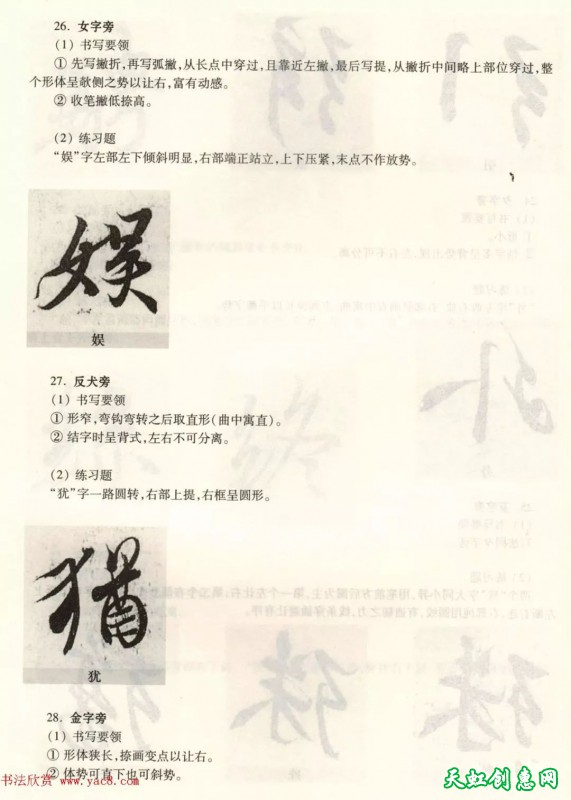 26. 女字旁
(1) 书写要领
① 先写撇折,再写弧撇,从长点中穿过,且靠近左撇,最后写提,从撇折中间略上部位穿过,整
个形体呈欹侧之势以让右,富有动感。
② 收笔撇低捺高。
(2) 练习题
“娱”字左部左下倾斜明显,右部端正站立,上下压紧,末点不作放势。
娱
娱
27. 反犬旁
(1) 书写要领
① 形窄,弯钩弯转之后取直形(曲中寓直)。
② 结字时呈背式,左右不可分离。
(2) 练习题
“犹”字一路圆转,右部上提,右框呈圆形。
猶
犹
28. 金字旁
(1) 书写要领
① 形体狭长,捺画变点以让右。
② 体势可直下也可斜势。
书法欣赏 www.yac8.com
天虹创意网